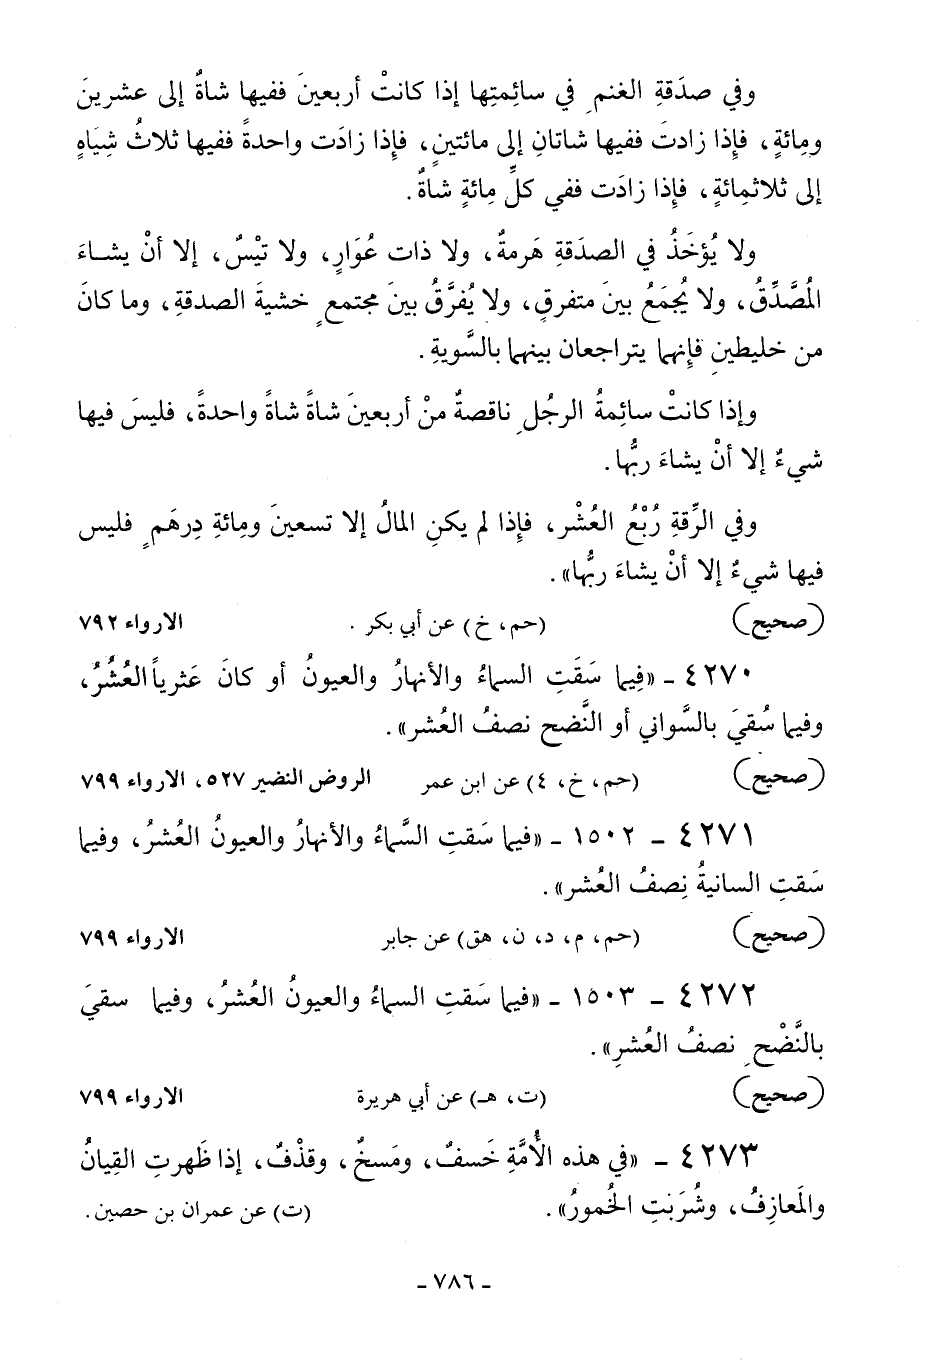 وفي صدَقةِ الغنمِ في سائِمتِها إذا كانتْ أربعينَ ففيها شاةٌ إلى عشرينَ
ومِائةٍ، فإِذا زادتَ ففيها شاتانِ إلى مائتينِ، فإِذا زادَت واحدةً ففيها ثلاثُ شِيَاهٍ
إلى ثلاثمِائةٍ، فإِذا زادَت ففي كلِّ مِائةٍ شاةٌ.
ولا يُؤخَذُ في الصدَقةِ هَرمةٌ، ولا ذات عُوَارٍ، ولا تيْسٌ، إلا أنْ يشاءَ
المُصَّدِّقُ، ولا يُجمَعُ بينَ متفرقٍ، ولا يُفرَّقُ بينَ مجتمعٍ خشيةَ الصدقةِ، وما كانَ
من خليطينِ فإِنهما يتراجعان بينهما بالسَّويةِ.
وإذا كانتْ سائِمةُ الرجُلِ ناقصةٌ منْ أربعينَ شاةً شاةً واحدةً، فليسَ فيها
شيءٌ إلا أنْ يشاءَ ربُّها.
وفي الرِّقةِ رُبْعُ العُشْر، فإِذا لم يكنِ المالُ إلا تسعينَ ومِائةِ دِرهَمٍ فليس
فيها شيءٌ إلا أنْ يشاءَ ربُّها».
(صحيح) (حم، خ) عن أبي بكر. الارواء ٧٩٢
٤٢٧٠ ـ «فِيما سَقَتِ السماءُ والأنهارُ والعيونُ أو كانَ عَثرياً العُشُرُ،
وفيما سُقيَ بالسَّواني أو النَّضح نصفُ العُشر».
(صحيح) (حم، خ، ٤) عن ابن عمر الروض النضير ٥٢٧، الارواء ٧٩٩
٤٢٧١ ـ ١٥٠٢ ـ «فيما سَقتِ السَّماءُ والأنهارُ والعيونُ العُشرُ، وفيما
سَقتِ السانيةُ نِصفُ العُشر».
(صحيح) (حم، م، د، ن، هق) عن جابر الارواء ٧٩٩
٤٢٧٢ ـ ١٥٠٣ ـ «فيما سَقتِ السماءُ والعيونُ العُشرُ، وفيما سقيَ
بالنَّضْحِ نصفُ العُشرِ».
(صحيح) (ت، هـ) عن أبي هريرة الارواء ٧٩٩
٤٢٧٣ ـ «في هذه الأُمَّةِ خَسفٌ، ومَسخٌ، وقذْفٌ، إذا ظَهرتِ القِيانُ
والمَعازِفُ، وشُرَبَتِ الخُمورُ». (ت) عن عمران بن حصين.
ـ ٧٨٦ ـ